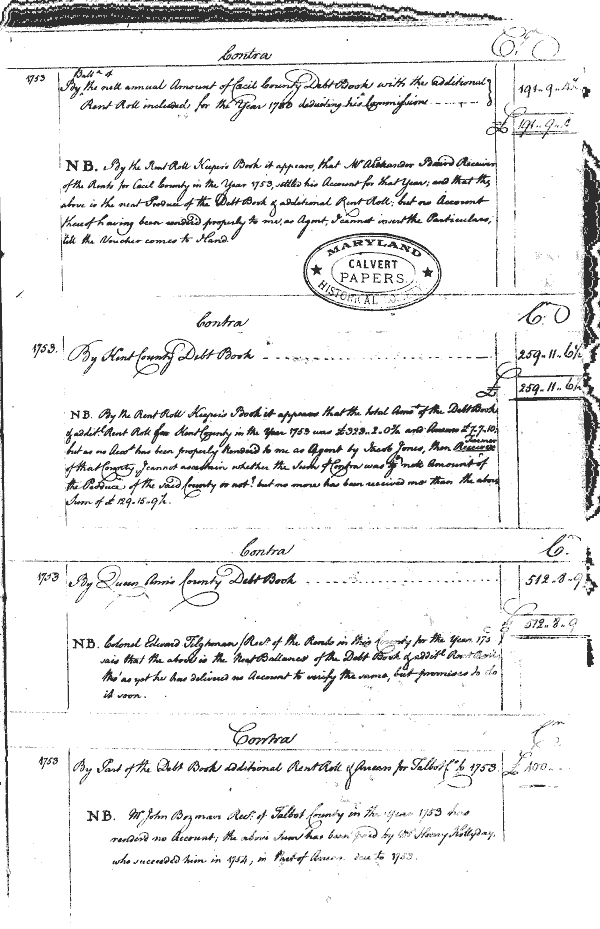 Contra Cr
1753 Ball.ce &
By the nett annual Amount of Cecil County Debt Book with the additional 191..9..
Rent Roll included for the Year 1753 deducting his Commissions
£ 191..9..
NB. By the Rent Roll Keeper's Book it appears, that Mr Alexander Baird Receiver
of the Rents for Cecil County in the Year 1753, settled his Account for that Year; and that the
above is the neat Produce of the Debt Book & additional Rent Roll; but no Account
thereof having been rendered properly to me, as Agent, I cannot insert the Particulars,
till the Voucher comes to Hand.
MARYLAND
CALVERT
PAPERS
HISTORICAL SOCIETY
Contra Cr
1753. By Kent County Debt Book 259..11..6½
£ 259..11..6½
NB. By the Rent Roll Keeper's Book it appears that the total Amot of the Debt Book
& additl Rent Roll for Kent County in the Year 1753 was £323..2..0¾ and Arrears £7.7.10;
but as no Acct has been properly rendered to me as Agent by Jacob Jones, then Farmer
of that County, I cannot ascertain whether the Sum & Contra was the neat Amount of
the Produce of the said County or not? but no more has been received than the above
Sum of £129..15..9½.
Contra Cr.
1753 By Queen Ann's County Debt Book 512..8..9
£ 512..8..9
NB. Colonel Edward Tilghman Recr. of the Rents in this County for the Year 175
said that the above is the Neat Ballance of the Debt Book & additl. Rent Roll
tho' as yet he has delivered no Account to verify the same, but promises to do
it soon.
Contra Cr
1753 By Part of the Debt Book additional Rent Roll & Arrears for Talbot Cy to 1753 £ 100
NB. Mr John Bozman Recr. of Talbot County in the Year 1753 has
rendered no Account; the above Sum has been paid by Mr Henry Hollyday,
who succeeded him in 1754, in Part of Arrears due to 1753.